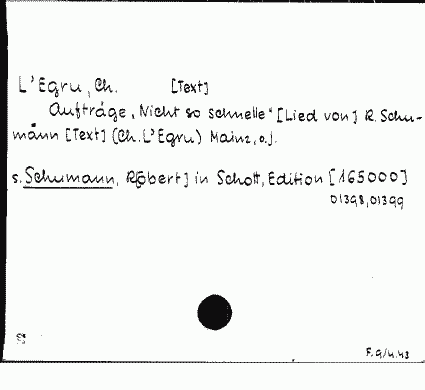 L'Egru, Ch. [Text]
Aufträge „Nicht so schnelle“ [Lied von] R. Schu-
mann [Text] (Ch. L'Egru) Mainz, o.J.
s. Schumann, R[obert] in Schott, Edition [165000]
01398, 01399
F. 9/4.43